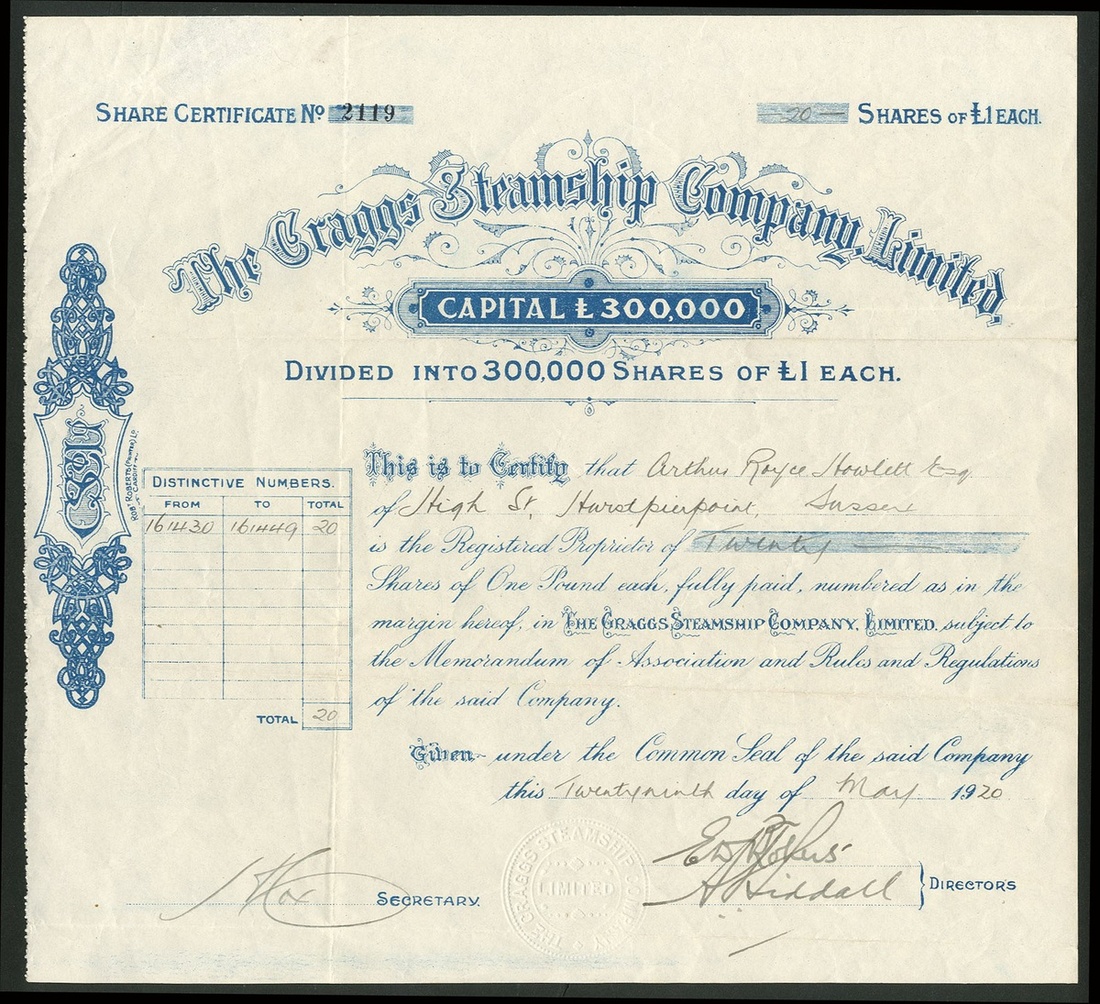 SHARE CERTIFICATE No 2119
20 — SHARES OF £1 EACH.
The Craggs Steamship Company, Limited,
CAPITAL £300,000
DIVIDED INTO 300,000 SHARES OF £1 EACH.
ROBT ROBERTS (PRINTER) LD.
CARDIFF
DISTINCTIVE NUMBERS.
FROM TO TOTAL
161430 161449 20
TOTAL 20
This is to Certify that Arthur Royce Howlett Esq
of High St, Hurstpierpoint, Sussex
is the Registered Proprietor of Twenty
Shares of One Pound each, fully paid, numbered as in the
margin hereof, in THE CRAGGS STEAMSHIP COMPANY, LIMITED, subject to
the Memorandum of Association and Rules and Regulations
of the said Company.
Given under the Common Seal of the said Company
this Twentyninth day of May 1920
SECRETARY.
DIRECTORS
THE CRAGGS STEAMSHIP COMPANY
LIMITED